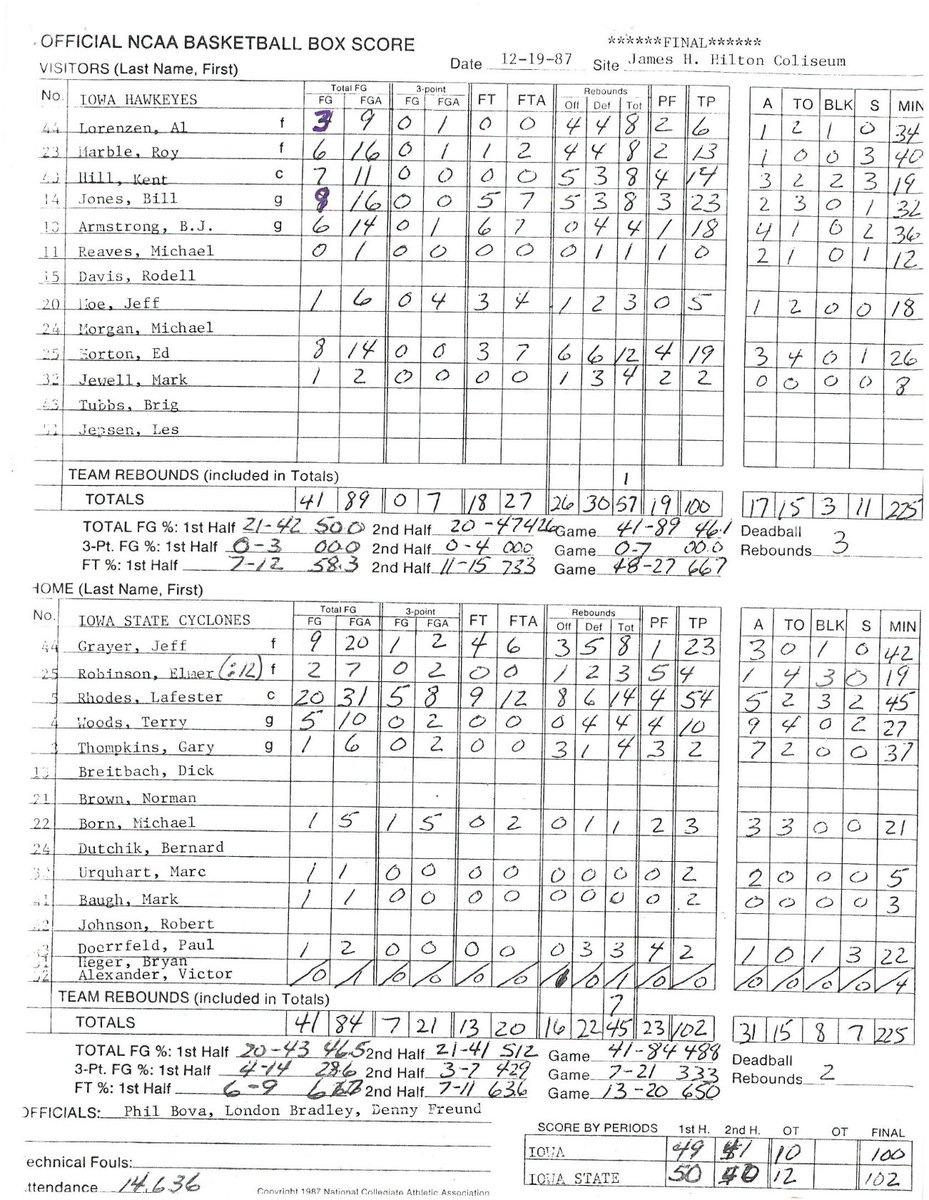 OFFICIAL NCAA BASKETBALL BOX SCORE ******FINAL******
VISITORS (Last Name, First) Date 12-19-87 Site James H. Hilton Coliseum
No. IOWA HAWKEYES Total FG FG FGA 3-point FG FGA FT FTA Rebounds Off Def Tot PF TP A TO BLK S MIN
44 Lorenzen, Al f 3 9 0 1 0 0 4 4 8 2 6 1 2 1 0 34
23 Marble, Roy f 6 16 0 1 1 2 4 4 8 2 13 1 0 0 3 40
Hill, Kent c 7 11 0 0 0 0 5 3 8 4 14 3 2 2 3 19
14 Jones, Bill g 9 16 0 0 5 7 5 3 8 3 23 2 3 0 1 32
10 Armstrong, B.J. g 6 14 0 1 6 7 0 4 4 1 18 4 1 0 2 36
11 Reaves, Michael 0 1 0 0 0 0 0 1 1 1 0 2 1 0 1 12
15 Davis, Rodell
20 Moe, Jeff 1 6 0 4 3 4 1 2 3 0 5 1 2 0 0 18
24 Morgan, Michael
25 Horton, Ed 8 14 0 0 3 7 6 6 12 4 19 3 4 0 1 26
32 Jewell, Mark 1 2 0 0 0 0 1 3 4 2 2 0 0 0 0 8
43 Tubbs, Brig
51 Jepsen, Les
TEAM REBOUNDS (included in Totals) 1
TOTALS 41 89 0 7 18 27 26 30 57 19 100 17 15 3 11 225
TOTAL FG %: 1st Half 21-42 500 2nd Half 20-47 426 Game 41-89 46.1 Deadball
3-Pt. FG %: 1st Half 0-3 00.0 2nd Half 0-4 000 Game 0-7 00.0 Rebounds 3
FT %: 1st Half 7-12 58.3 2nd Half 11-15 733 Game 18-27 667
HOME (Last Name, First)
No. IOWA STATE CYCLONES Total FG FG FGA 3-point FG FGA FT FTA Rebounds Off Def Tot PF TP A TO BLK S MIN
44 Grayer, Jeff f 9 20 1 2 4 6 3 5 8 1 23 3 0 1 0 42
25 Robinson, Elmer (:12) f 2 7 0 2 0 0 1 2 3 5 4 1 4 3 0 19
5 Rhodes, Lafester c 20 31 5 8 9 12 8 6 14 4 54 5 2 3 2 45
4 Woods, Terry g 5 10 0 2 0 0 0 4 4 4 10 9 4 0 2 27
3 Thompkins, Gary g 1 6 0 2 0 0 3 1 4 3 2 7 2 0 0 37
Breitbach, Dick
21 Brown, Norman
22 Born, Michael 1 5 1 5 0 2 0 1 1 2 3 3 3 0 0 21
24 Dutchik, Bernard
Urquhart, Marc 1 1 0 0 0 0 0 0 0 0 2 2 0 0 0 5
Baugh, Mark 1 1 0 0 0 0 0 0 0 0 2 0 0 0 0 3
Johnson, Robert
Doerrfeld, Paul 1 2 0 0 0 0 0 3 3 4 2 1 0 1 3 22
Heger, Bryan
Alexander, Victor 0 1 0 0 0 0 0 1 0 0 0 0 0 0 4
TEAM REBOUNDS (included in Totals) 7
TOTALS 41 84 7 21 13 20 16 22 45 23 102 31 15 8 7 225
TOTAL FG %: 1st Half 20-43 46.5 2nd Half 21-41 512 Game 41-84 488 Deadball
3-Pt. FG %: 1st Half 4-14 28.6 2nd Half 3-7 429 Game 7-21 333 Rebounds 2
FT %: 1st Half 6-9 2nd Half 7-11 636 Game 13-20 650
OFFICIALS: Phil Bova, London Bradley, Denny Freund
SCORE BY PERIODS 1st H. 2nd H. OT OT FINAL
IOWA 49 41 10 100
IOWA STATE 50 40 12 102
Technical Fouls:
Attendance 14,636
Copyright 1987 National Collegiate Athletic Association